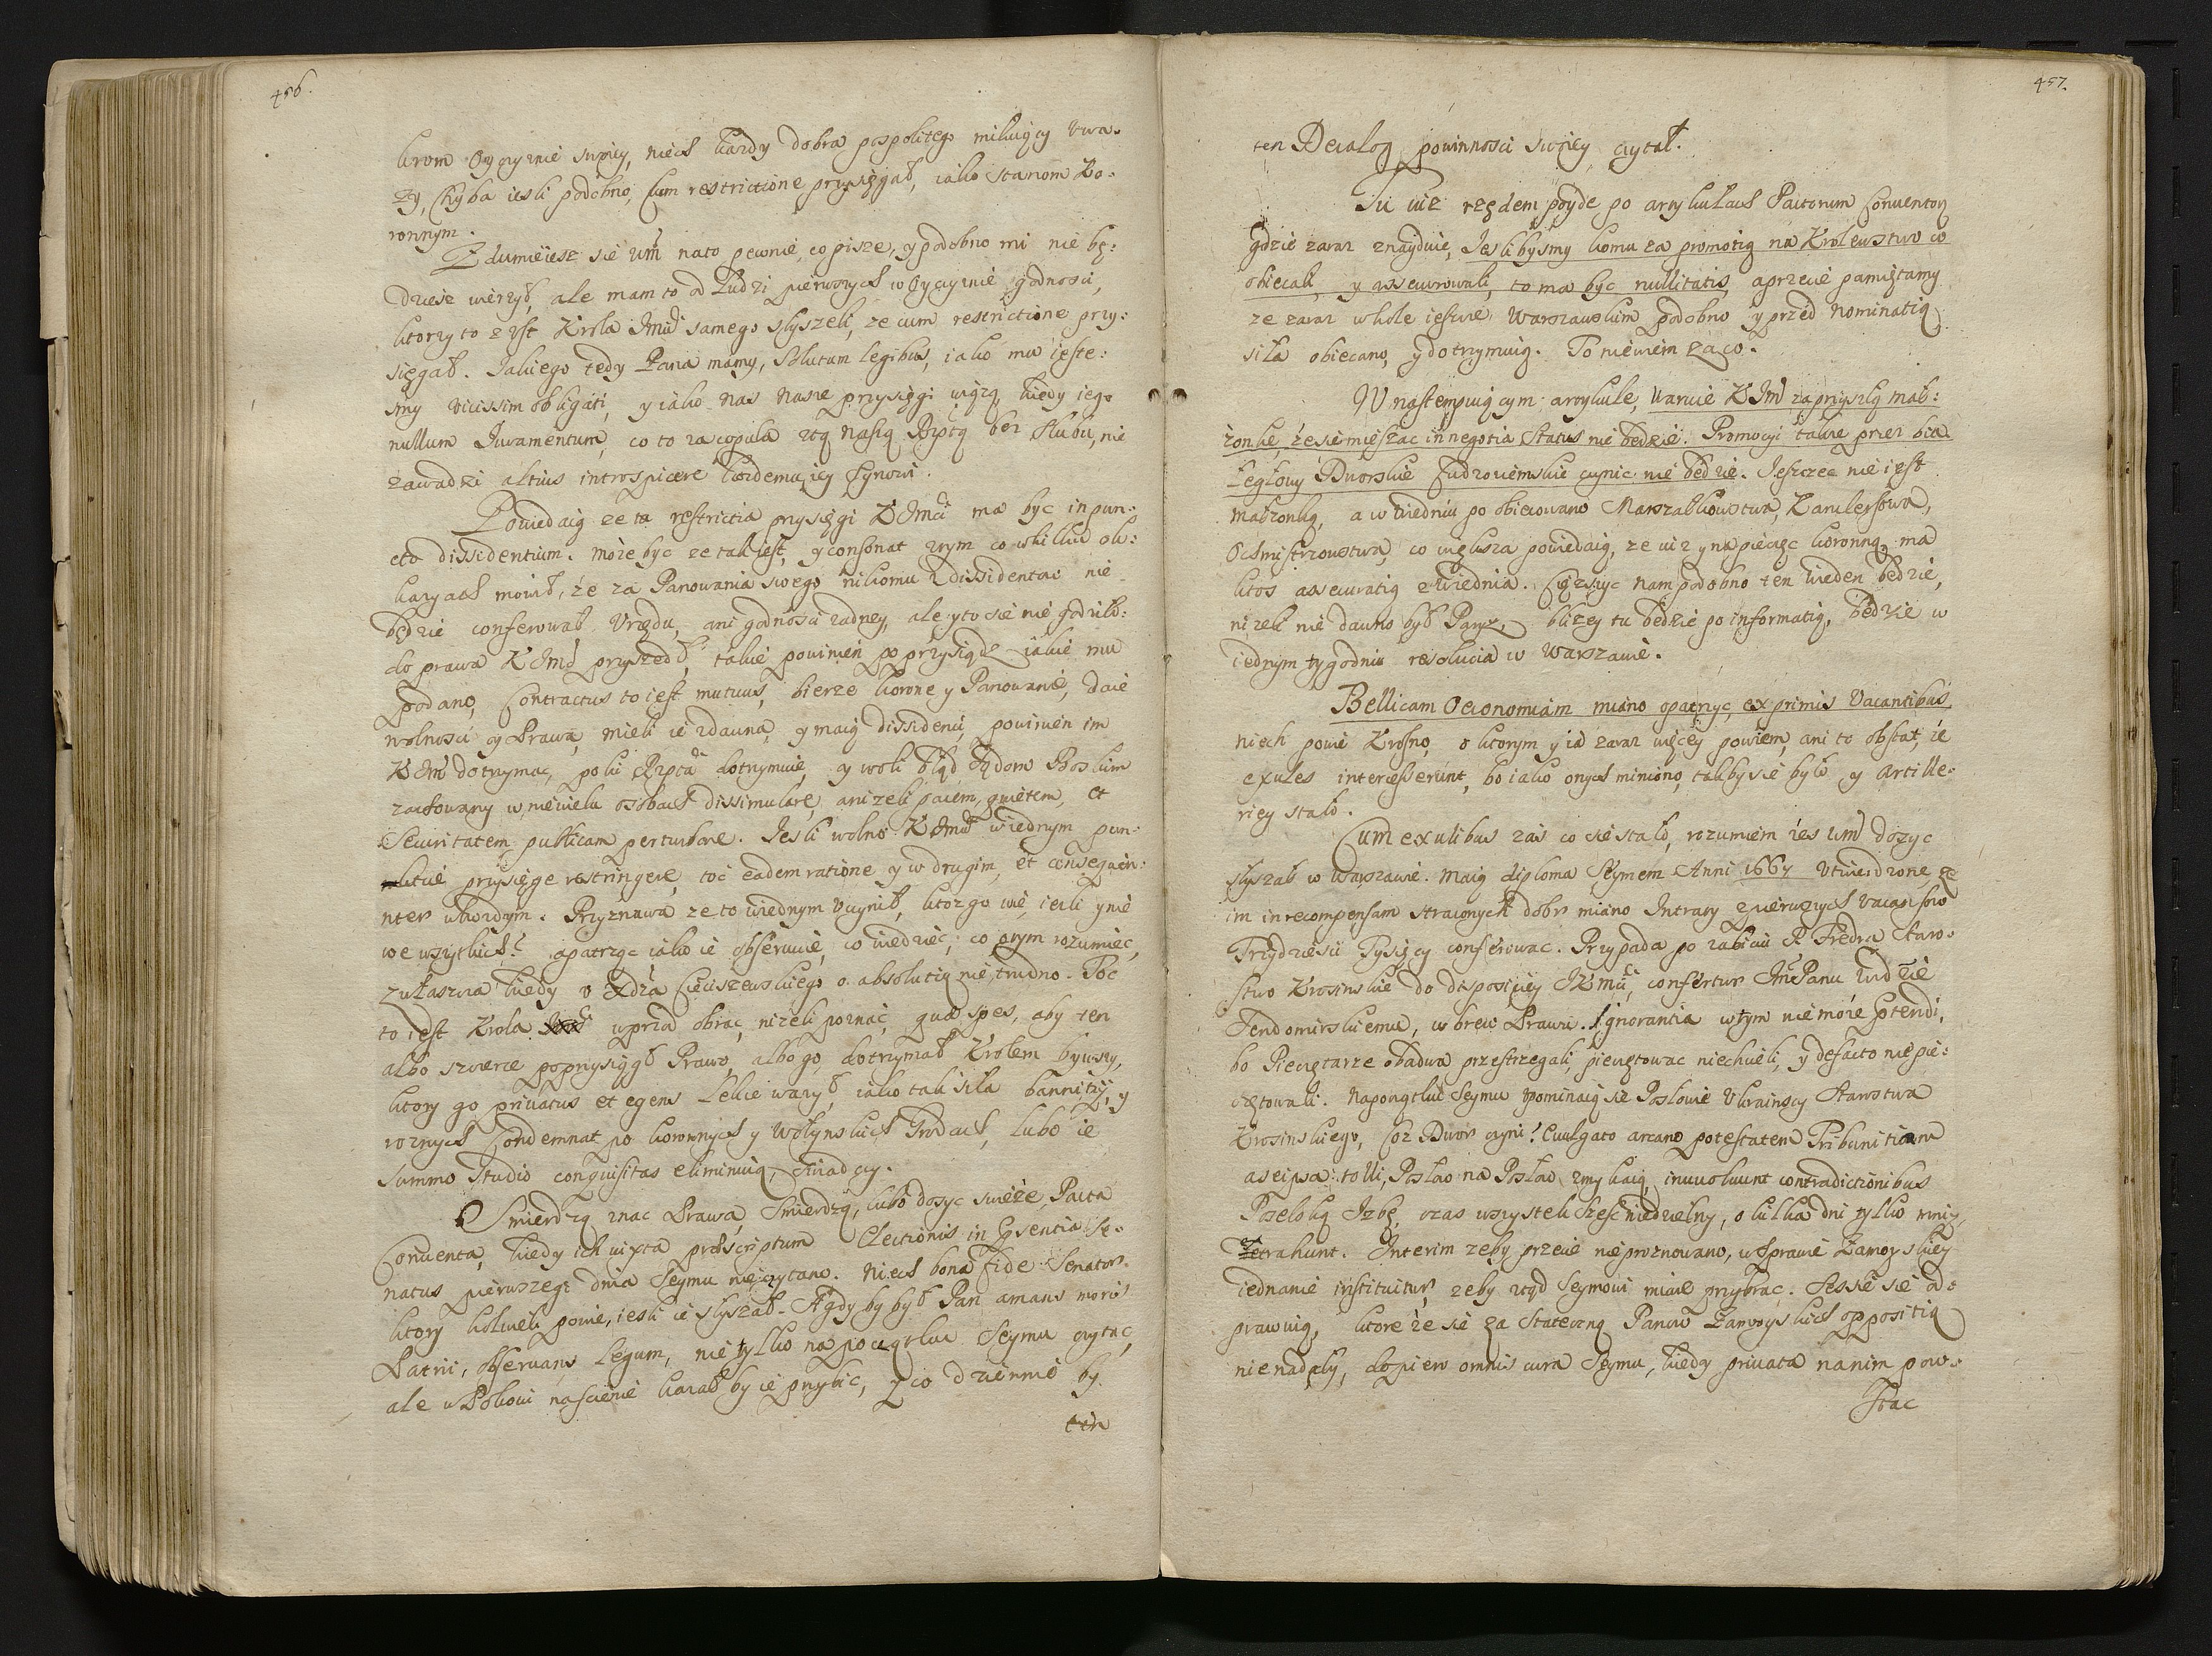 456.
kirom Oyczyznie swoiey, niech każdy dobra pospolitego miłuiący uwa-
ży, Chyba iesli podobno, Cum restrictione przysięgał, iako Stanom Ko-
ronnym.
Zdumieiesz się WM nato pewnie, co pisze, y podobno mi nie bę:
dziesz wierzył, ale mam to od Ludzi pierwszych w Oyczyznie godnosci,
ktorzy to z ust Krola JMci samego słyszeli, ze cum restrictione przy:
sięgał. Jakiego tedy Pana mamy, Solutum legibus, iako mu ieste:
smy vicissim obligati, y iako nas nasze przysięgi wiążą, kiedy iego
nullum Juramentum, co to za copula ztą naszą Rzptą bez slubu, nie
zawadzi altius introspicere każdemu iey Synowi.
Powiedaią ze ta restrictia przysięgi KJMci ma byc in pun:
cto dissidentium. może byc ze tak iest, y consonat ztym co w kilku oka:
kazyach mowił, że za Panowania swego nikomu z dissidentow nie
będzie conferował Urzędu, ani godnosci zadney, ale y to się nie godziło:
do prawa KJMć przyszedł, takie powinien poprzysiądz iakie mu
podano, Contractus to iest mutuus, bierze korone y Panowanie, daie
wolnosci y Prawa, mieli ie zdawna, y maią dissidenci, powinien im
KJMć dotrzymac, poki Rzpta dotrzymuie, y woli błąd sądom Boskim
zachowany w niewielu osobach dissimulare, anizeli pacem, quietem, et
Securitatem publicam perturbare. Jesli wolno KJMci wiednym pun-
kcie przysięge restringere, toć eadem ratione y w drugim, et consequen:
nter w każdym. Przyznawa ze to wiednym uczynił, ktoz go wie, iesli y nie
we wszytkich? a patrząc iako ie obserwuie, co wiedzieć, co o tym rozumieć,
zwłaszcza kiedy o Xdza Cieciszewskiego o absolutią nie trudno. Toć
to iest Krola wprzod obrac, nizeli poznać, qua spes, aby ten
albo szczerze poprzysiągł Prawo, albo go dotrzymał Krolem bywszy,
ktory go privatus et egens Lekce wazył, iako tak siła bannitiy, y
roznych Condemnat po koronnych y Wołynskich Grodach, lubo ie
summo Studio conquisitas eliminuią, swiadczy.
Smierdzą znac Prawa, Smierdzą, lubo dosyc swieże, Pacta
Conventa, kiedy ich iuxta praescriptum Electionis in Praesentia Se-
natus pierwszego dnia Seymu nie czytano. Niech bona fide Senator
ktory kolwiek powie, iesli ie słyszał. A gdy by był Pan amans moris
Patrii, observans Legum, nie tylko na początku Seymu czytać,
ale w Pokoiu na scienie kazał by ie przybic, y co dziennie by
ten

457.
ten Decalog powinnosci swoiey czytał.
Tu iuz rzędem poyde po artykułach Pactorum Conventor
gdzie zaraz znayduie, Jeslibysmy komu za promotią na Krolewstwo co
obiecali, y assecurowali, to ma byc nullitatis, a przecie pamiętamy
ze zaraz w kole ieszcze Warszawskim podobno y przed nominatią
siła obiecano, y dotrzymuią. To niewiem za co.
W nastempuiącym artykule, Waruie KJMć za przyszłą mał:
żonke, że się mieszac in negotia Status nie będzie. Promocyi także przez bia-
łegłowy Dworskie Cudzoziemskie czynic nie będzie. Jeszcze nie iest
małżonką, a w Wiedniu po obiecowano Marszałkowstwa, Kanclerstwa,
Ochmistrzowstwa, co większa powiedaią, ze iuz y na pieczęc koronną, ma
ktos assecuratią z Wiednia. Cięzszyc nam podobno ten Wieden będzie,
nizeli nie dawno był Paryz, blizey tu będzie po informatią, będzie w
iednym tygodniu resolucia w Warszawie.
Bellicam Oeconomiam miano opatrzyc ex primis Vacantibus,
niech powie Krosno, o ktorym y ia zaraz więcey powiem, ani to obstat, że
exules intercesserunt, bo iako onych miniono, takby się było y Artille:
riey stało.
Cum exulibus zas co się stało, rozumiem ześ WM dosyc
słyszał w Warszawie. Maią diploma Seymem Anni 1667 utwierdzone, ze
im in recompensam straconych dobr miano Intraty z pierwszych Vacansow
Trzydziesci Tysięcy conferowac. Przypada po zabiciu P. Fredra Staro-
stwo Krosinskie do disposiciey JKMci, confertur JMć Panu Sędzie
Sendomirskiemu, w brew Prawu. Ignorantia w tym nie może praetendi,
bo Pieczętarze obadwa przestrzegali, pieczętowac niechcieli, y de facto nie pie:
czętowali. Na początku Seymu upominaią się Posłowie Ukrainscy Starostwa
Krosinskiego, Coz Dwor czyni? Evulgato arcano potestatem Tribunitiam
a se ipsa tolli, Posłow na Posłow zmykaią, involvunt contradictionibus
Poselską Izbę, czas wszystek szesc niedzielny, o kilka dni tylko mniey
detrahunt. Interim zeby przecie nie proznowano, w sprawie Zamoyskiey
iednanie instituitur, zeby ztąd Seymowi miane przybrac. Sessie się od-
prawuią, ktore że się za stateczną Panow Zamoyskich oppositią
nienadały, dopiero omnis cura Seymu, kiedy privata nanim pow-
stac